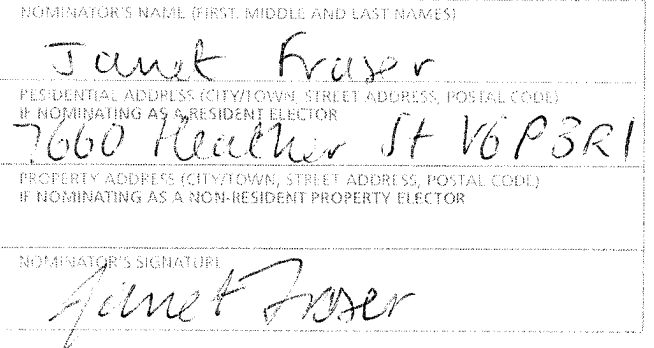 NOMINATOR'S NAME (FIRST, MIDDLE AND LAST NAMES)
Janet Fraser
RESIDENTIAL ADDRESS (CITY/TOWN, STREET ADDRESS, POSTAL CODE)
IF NOMINATING AS A RESIDENT ELECTOR
7660 Heather St V6P3R1
PROPERTY ADDRESS (CITY/TOWN, STREET ADDRESS, POSTAL CODE)
IF NOMINATING AS A NON-RESIDENT PROPERTY ELECTOR
NOMINATOR'S SIGNATURE
Janet Fraser